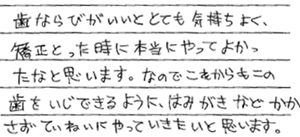 歯ならびがいいととても気持ちよく、
矯正とった時に本当にやってよかっ
たなと思います。なのでこれからもこの
歯をいじできるように、はみがきなどかか
さずていねいにやっていきたいと思います。